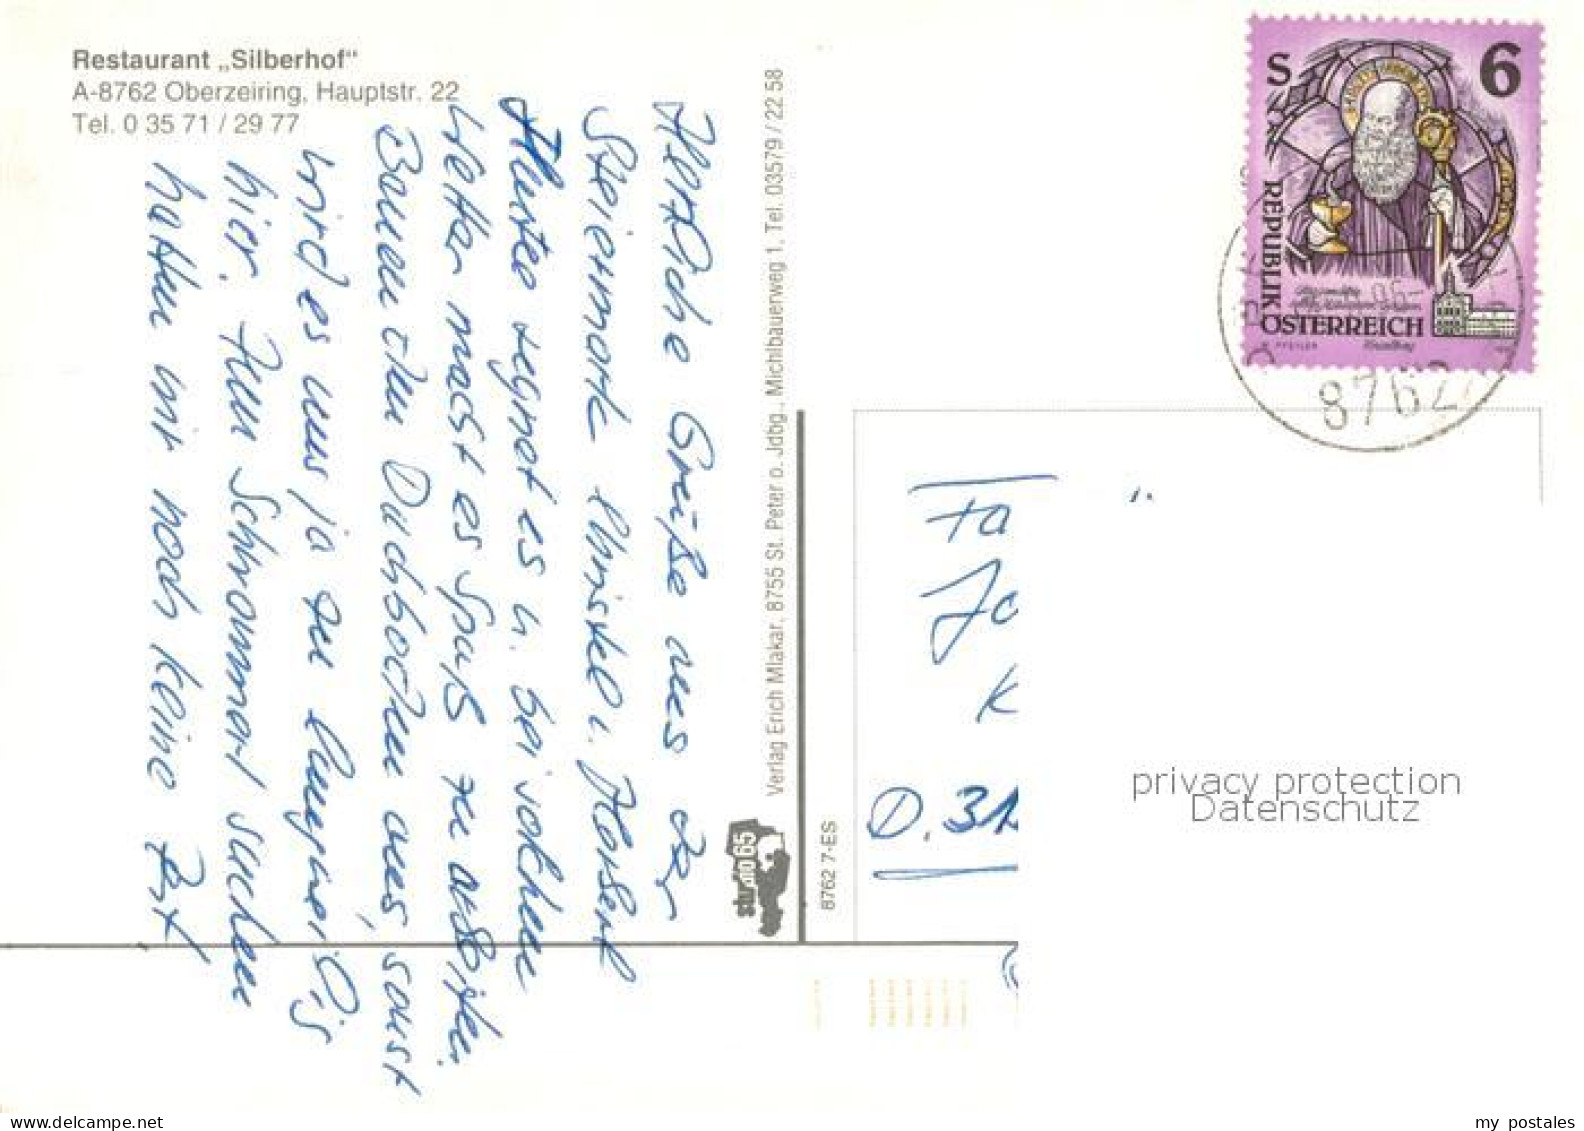 Restaurant „Silberhof“
A-8762 Oberzeiring, Hauptstr. 22
Tel. 0 35 71 / 29 77
Herzliche Grüße aus der
Steiermark Christel u. Herbert
Heute regnet es u. bei solchem
Wetter macht es Spaß zu arbeiten.
Bauen den Dachboden aus, sonst
wird es uns ja zu
hier. Zum Schwammerl suchen
hatten wir noch keine Zeit
Verlag Erich Mlakar, 8755 St. Peter o. Jdbg., Michlbauerweg 1, Tel. 03579 / 22 58
studio 65
8762 7-ES
S 6
REPUBLIK
ÖSTERREICH
8762
Fa
Jo
K
D. 31
privacy protection
Datenschutz
my postales
www.delcampe.net